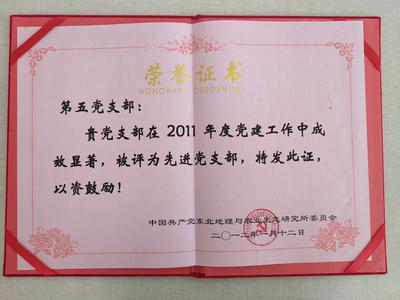 荣誉证书
HONORARY CREDENTIAL
第五党支部：
贵党支部在2011年度党建工作中成
效显著，被评为先进党支部，特发此证，
以资鼓励！
中国共产党东北地理与农业生态研究所委员会
二〇一二年一月十二日